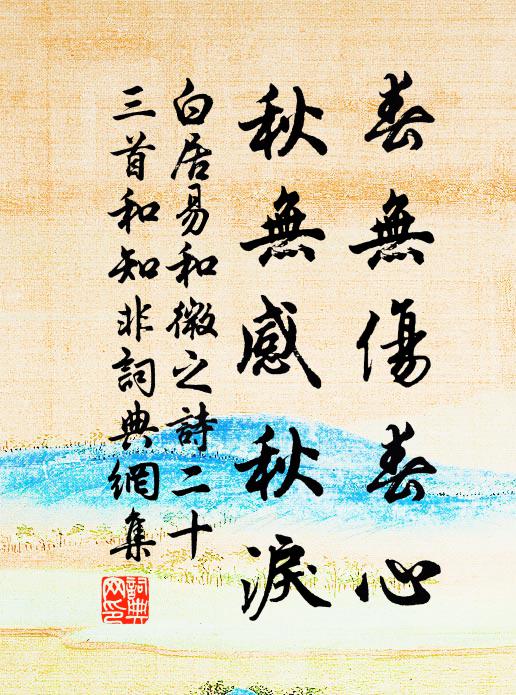 春無傷春心
秋無感秋淚
白居易和微之詩二十
三首和知非詞典網集
詞典網印